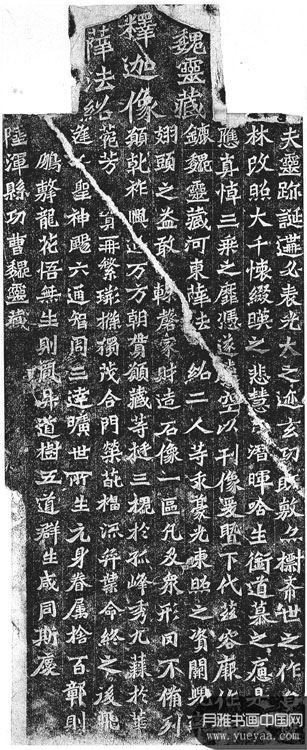 魏靈藏
釋迦像
薛法紹
夫靈跡誕遘必表光大之迹玄功既敷亦標希世之作
林改照大千懷綴暎之悲慧日潛暉唅生銜道慕之痛是
應真悼三乘之靡憑遂騰空以刊像爰暨下代茲容厥作
魏靈藏河東薛法紹二人等求豪光東照之資闕兜
翅頭之益敢輒罄家財造石像一區凡及眾形罔不備列
願乾祚興延万方朝貫願藏等挺三槐於孤峰秀九蕀於華
菀芳實再繁條獨茂合門榮葩福流弈葉命終之後飛
逢千聖神颺六通智周三達曠世所生元身眷屬捨百鄣則
鵬擊龍花悟無生則鳳昇道樹五道群生咸同斯慶
陸渾縣功曹魏靈藏
月雅书画中国网
www.yueyaa.com